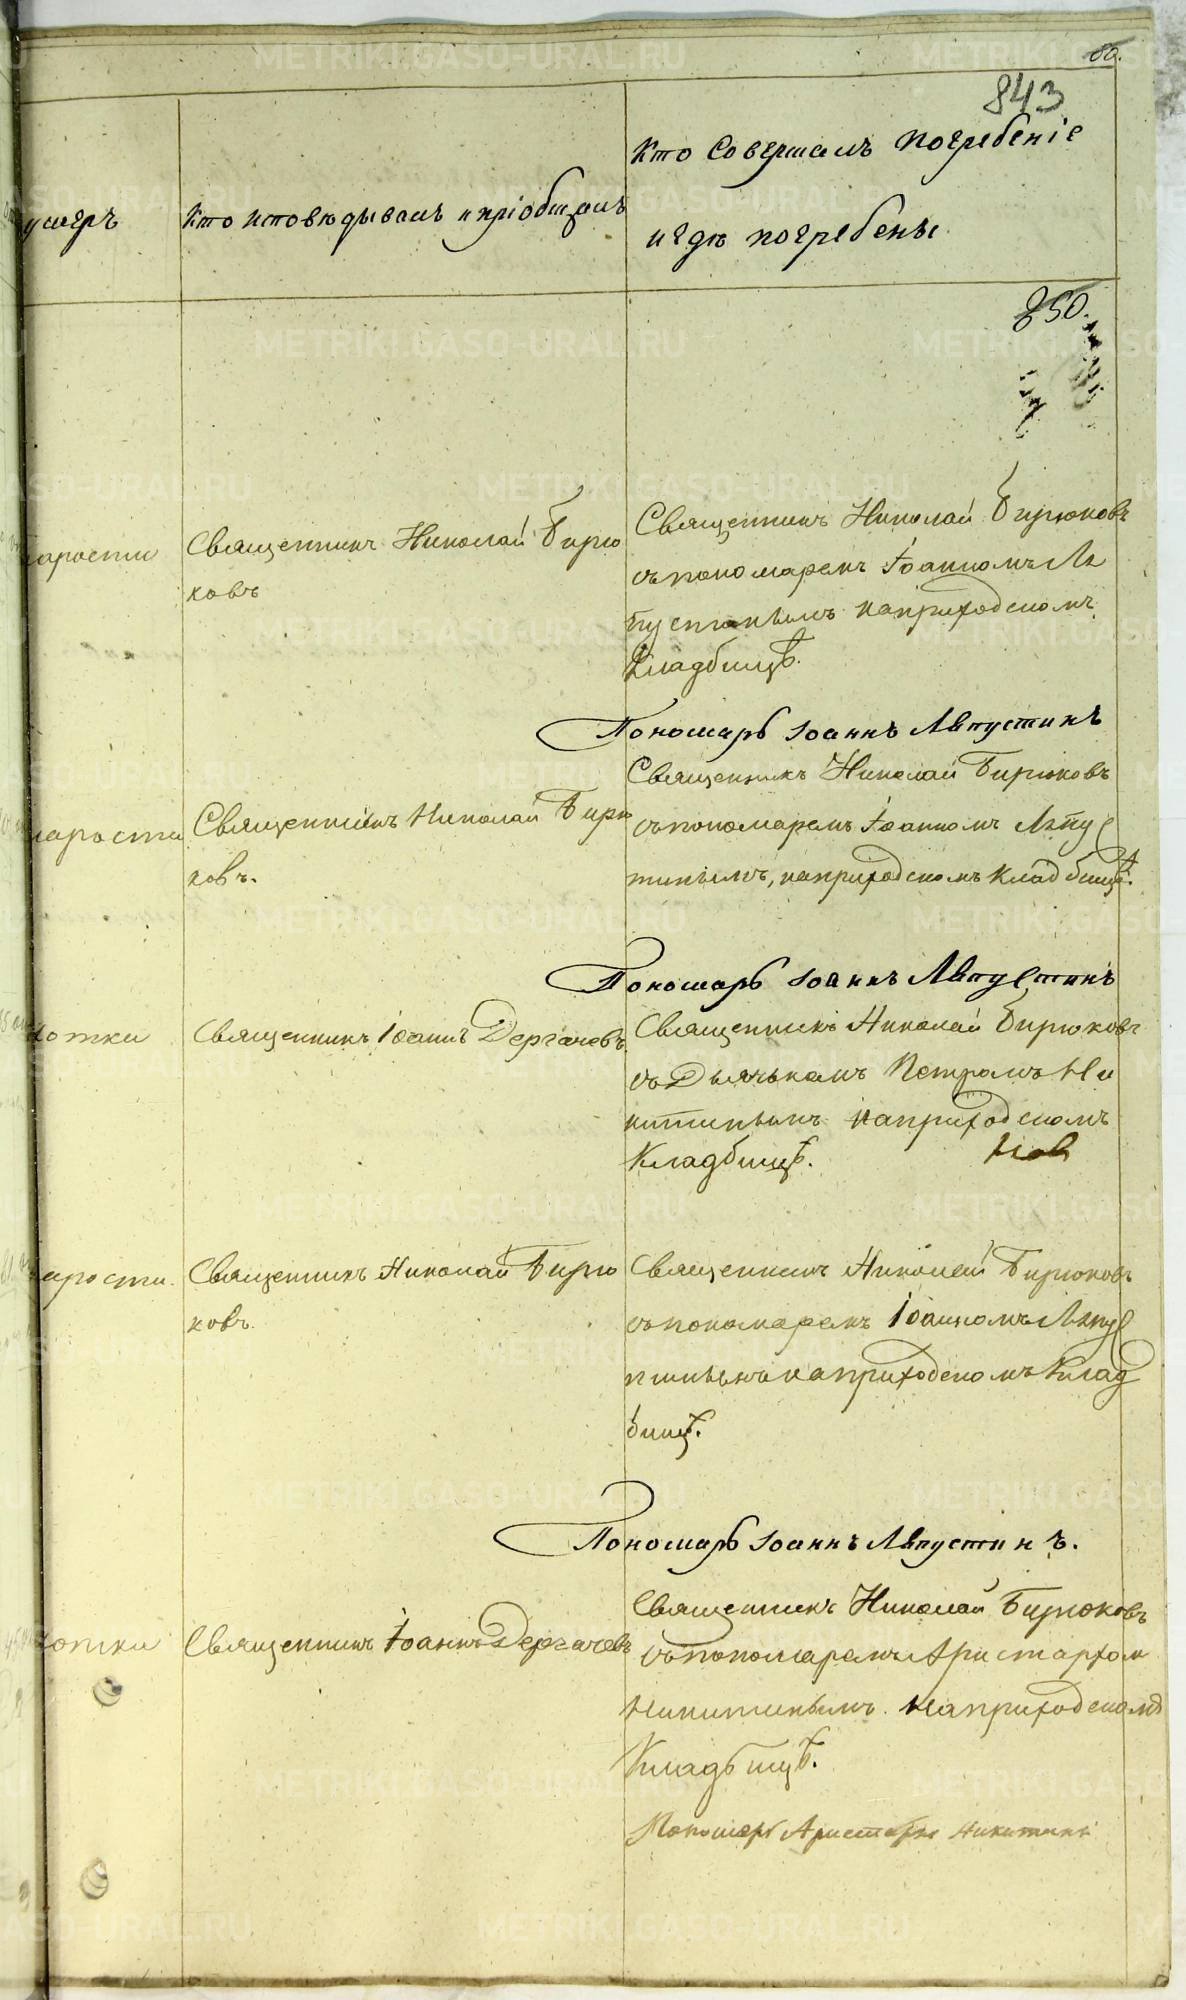 80.
843
умеръ
Кто исповѣдывалъ и пріобщалъ
Кто совершалъ погребеніе
и гдѣ погребены
850.
старости
Священникъ Николай Бирю
ковъ
Священникъ Николай Бирюковъ
съ пономаремъ Іоанномъ Ав
густинымъ на приходскомъ
Кладбищѣ.
Пономарь Іоаннъ Августинъ
старости
Священникъ Николай Бирю
ковъ.
Священникъ Николай Бирюковъ
съ пономаремъ Іоанномъ Авгус
тинымъ, на приходскомъ Кладбищѣ.
Пономарь Іоаннъ Августинъ
чахотки
Священникъ Іоаннъ Дергачевъ
Священникъ Николай Бирюковъ
съ Дьячкамъ Петромъ Ни
китинымъ на приходскомъ
Кладбищѣ.
старости.
Священникъ Николай Бирю
ковъ.
Священникъ Николай Бирюковъ
съ пономаремъ Іоанномъ Авгус
тинымъ на приходскомъ Клад
бищѣ.
Пономарь Іоаннъ Августинъ.
чахотки
Священникъ Іоаннъ Дергачевъ
Священникъ Николай Бирюковъ
съ пономаремъ Аристархом
Никитинымъ на приходскомъ
Кладбищѣ.
Пономарь Аристархъ Никитинъ